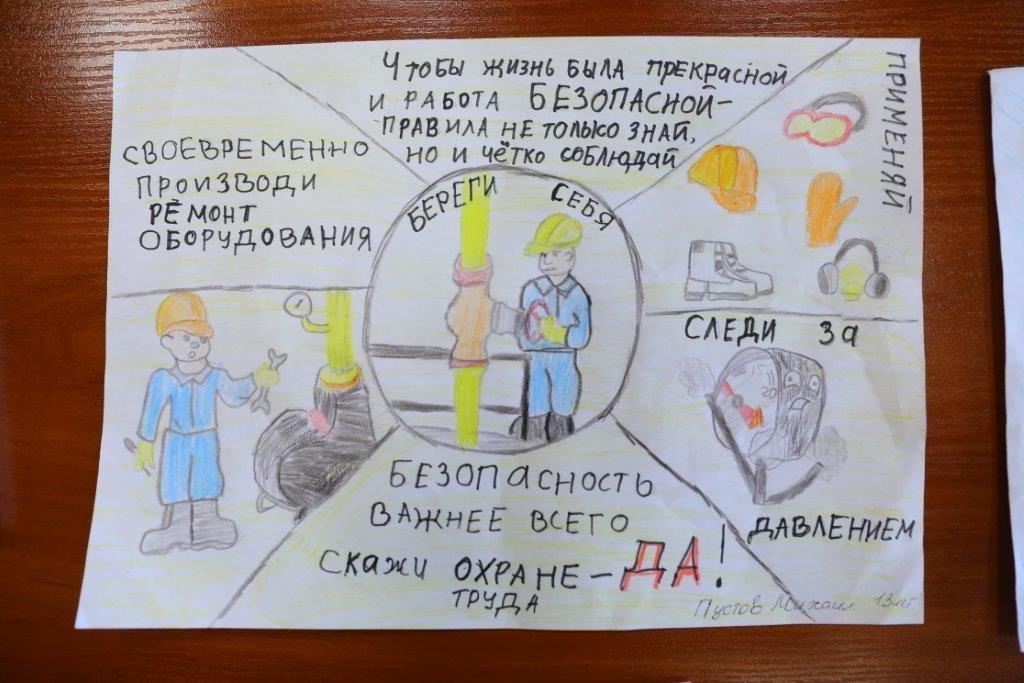 Чтобы жизнь была прекрасной
и работа БЕЗОПАСНОЙ–
правила не только знай,
но и чётко соблюдай
СВОЕВРЕМЕННО
ПРОИЗВОДИ
РЕМОНТ
ОБОРУДОВАНИЯ
БЕРЕГИ СЕБЯ
ПРИМЕНЯЙ
СЛЕДИ ЗА
ДАВЛЕНИЕМ
БЕЗОПАСНОСТЬ
ВАЖНЕЕ ВСЕГО
СКАЖИ ОХРАНЕ – ДА!
ТРУДА
Пустов Михаил 13 лет